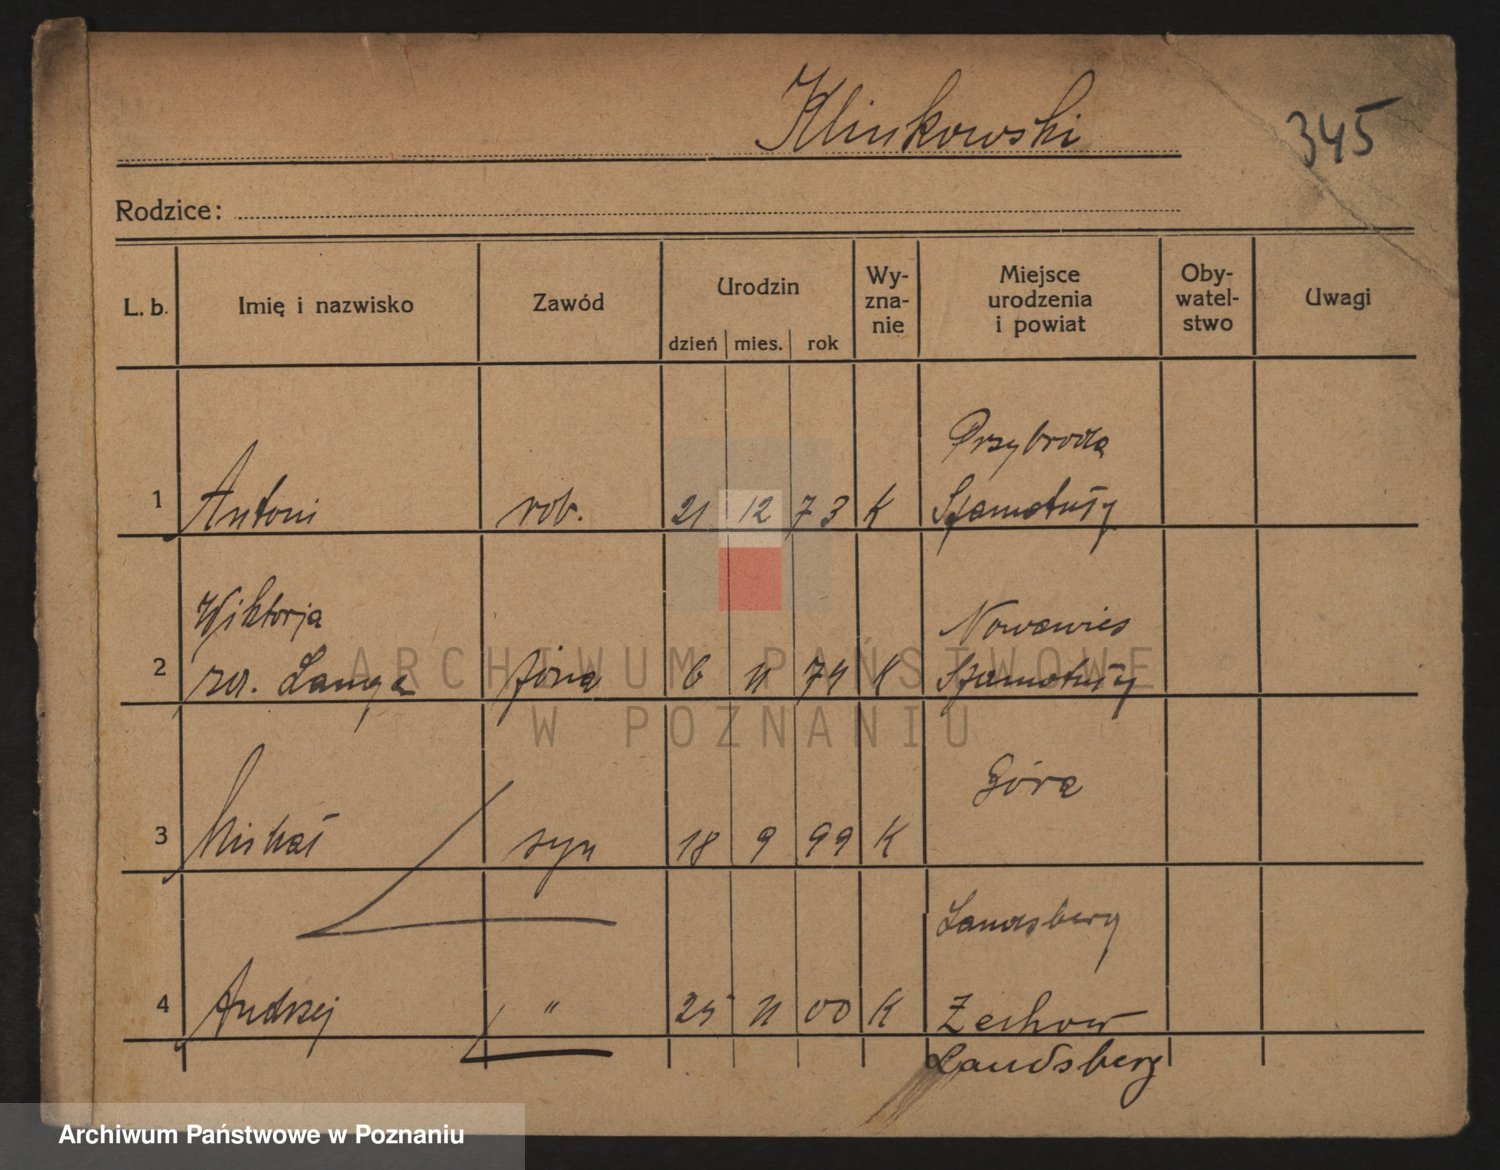 Klinkowski
345
Rodzice:
L. b. Imię i nazwisko Zawód Urodzin Wy-zna-nie Miejsce urodzenia i powiat Oby-watel-stwo Uwagi
dzień mies. rok
Przybroda
1 Antoni rob. 21 12 73 K Szamotuły
Wiktorja Nowawieś
2 żona 6 11 74 K Szamotuły
Góra
3 Michał syn 18 9 99 K
Landsberg
4 Andrzej " 25 11 00 K Zechow
Landsberg
ARCHIWUM PAŃSTWOWE
W POZNANIU
Archiwum Państwowe w Poznaniu